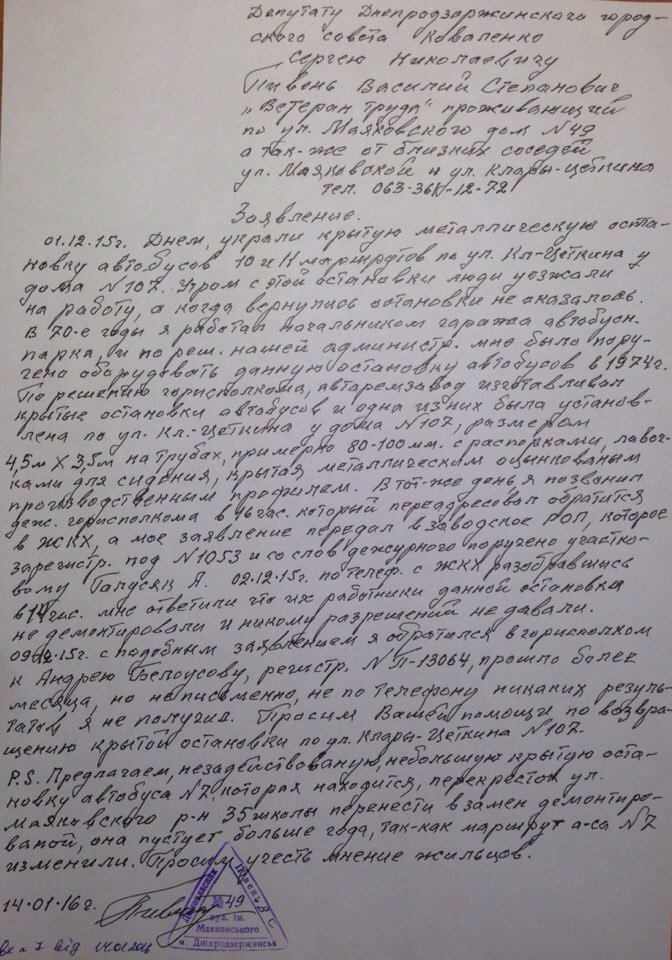 Депутату Днепродзержинского город-
ского совета Коваленко
Сергею Николаевичу
Пивень Василий Степанович
"Ветеран труда" проживающий
по ул. Маяковского дом N49
а так-же от близких соседей
ул. Маяковской и ул. Клары-Цеткина
тел. 063-364-12-72
Заявление.
01.12.15г. Днем, украли крытую металлическую оста-
новку автобусов 10 и 11 маршрутов по ул. Кл-Цеткина у
дома N107. Утром с этой остановки люди уезжали
на работу, а когда вернулись остановки не оказалось.
В 70-е годы я работал начальником гаража автобусн.
парка, и по реш. нашей администр. мне было пору-
чено оборудовать данную остановку автобусов в 1974г.
По решению горисполкома, авторемзавод изготавливал
крытые остановки автобусов и одна из них была установ-
лена по ул. Кл.-Цеткина у дома N107, размером
4,5м X 3,5м на трубах, примерно 80-100мм. с распорками, лавоч-
ками для сидения, крытая металлическим оцынкованым
производственным профилем. В тот-же день я позвонил
деж. горисполкома в 16 час. который переадресовал обратится
в ЖКХ, а мое заявление передал в заводское РОП, которое
зарегистр. под N1053 и со слов дежурного поручено участко-
вому А. 02.12.15г. по телеф. с ЖКХ разобравшись
в час. мне ответили что их работники данной остановки
не демонтировали и никому разрешений не давали.
09.12.15г. с подобным заявлением я обратился в горисполком
к Андрею Белоусову, регистр. N П-13064, прошло более
месяца, но не письменно, не по телефону никаких резуль-
татов я не получил. Просим Вашей помощи по возвра-
щению крытой остановки по ул. Клары-Цеткина N107.
P.S. Предлагаем, незадействованую, небольшую крытую оста-
новку автобуса N7, которая находится, перекресток ул.
Маяковского р-н 35 школы перенести в замен демонтиро-
ваной, она пустует больше года, так-как маршрут а-са N7
изменили. Просим учесть мнение жильцов.
14.01.16г.
Півень В. С.
№ 49
вул. ім.
Маяковського
м. Дніпродзержинськ
вх n 7 від 14.01.2016